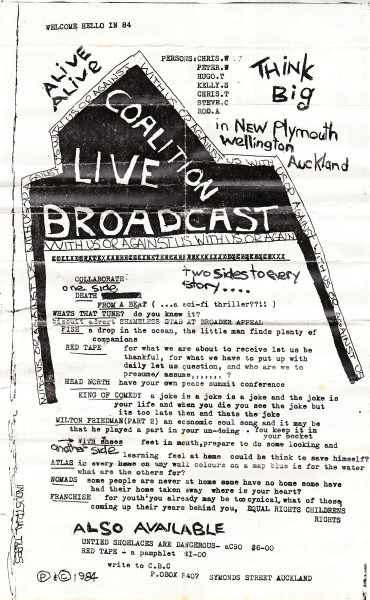 WELCOME HELLO IN 84
PERSONS:CHRIS.W
PETER.W
HUGO.T
KELLY.S
CHRIS.T
STEVE.C
ROD.A
ALIVE
ALIVE
THINK
BIG
in NEW Plymouth
Wellington
Auckland
WITH US OR AGAINST US WITH US OR AGAINST US
COALITION
LIVE
BROADCAST
WITH US OR AGAINST US WITH US OR AGAIN
COLLABORATE
one side
two sides to every
story....
DEATH
FROM A BEAT (...a sci-fi thriller??!!)
WHATS THAT TUNE? do you know it?
biscuit advert SHAMELESS STAB AT BROADER APPEAL
FISH a drop in the ocean, the little man finds plenty of
companions
RED TAPE for what we are about to receive let us be
thankful, for what we have to put up with
daily let us question, and who are we to
presume/ assume,,,,,,, ?
HEAD NORTH have your own peace summit conference
KING OF COMEDY a joke is a joke is a joke and the joke is
your life and when you die you see the joke but
its too late then and thats the joke
MILTON FRIEDMAN(PART 2) an economic soul song and it may be
that he played a part in your un-doing . You keep it in
your pocket
WITH shoes feet in mouth,prepare to do some looking and
another side
learning feel at home could he think to save himself?
ATLAS is every home on any wall colours on a map blue is for the water
what are the others for?
NOMADS some people are never at home some have no home some have
had their home taken away where is your heart?
FRANCHISE for youth you already may be too cynical, what of those
coming up their years behind you, EQUAL RIGHTS CHILDRENS
RIGHTS
ALSO AVAILABLE
UNTIED SHOELACES ARE DANGEROUS- aC90 $6-00
RED TAPE - a pamphlet $1-00
write to C.B.C
P.OBOX 5407 SYMONDS STREET AUCKLAND
INDUSTRIAL TAPES
℗ & © 1984